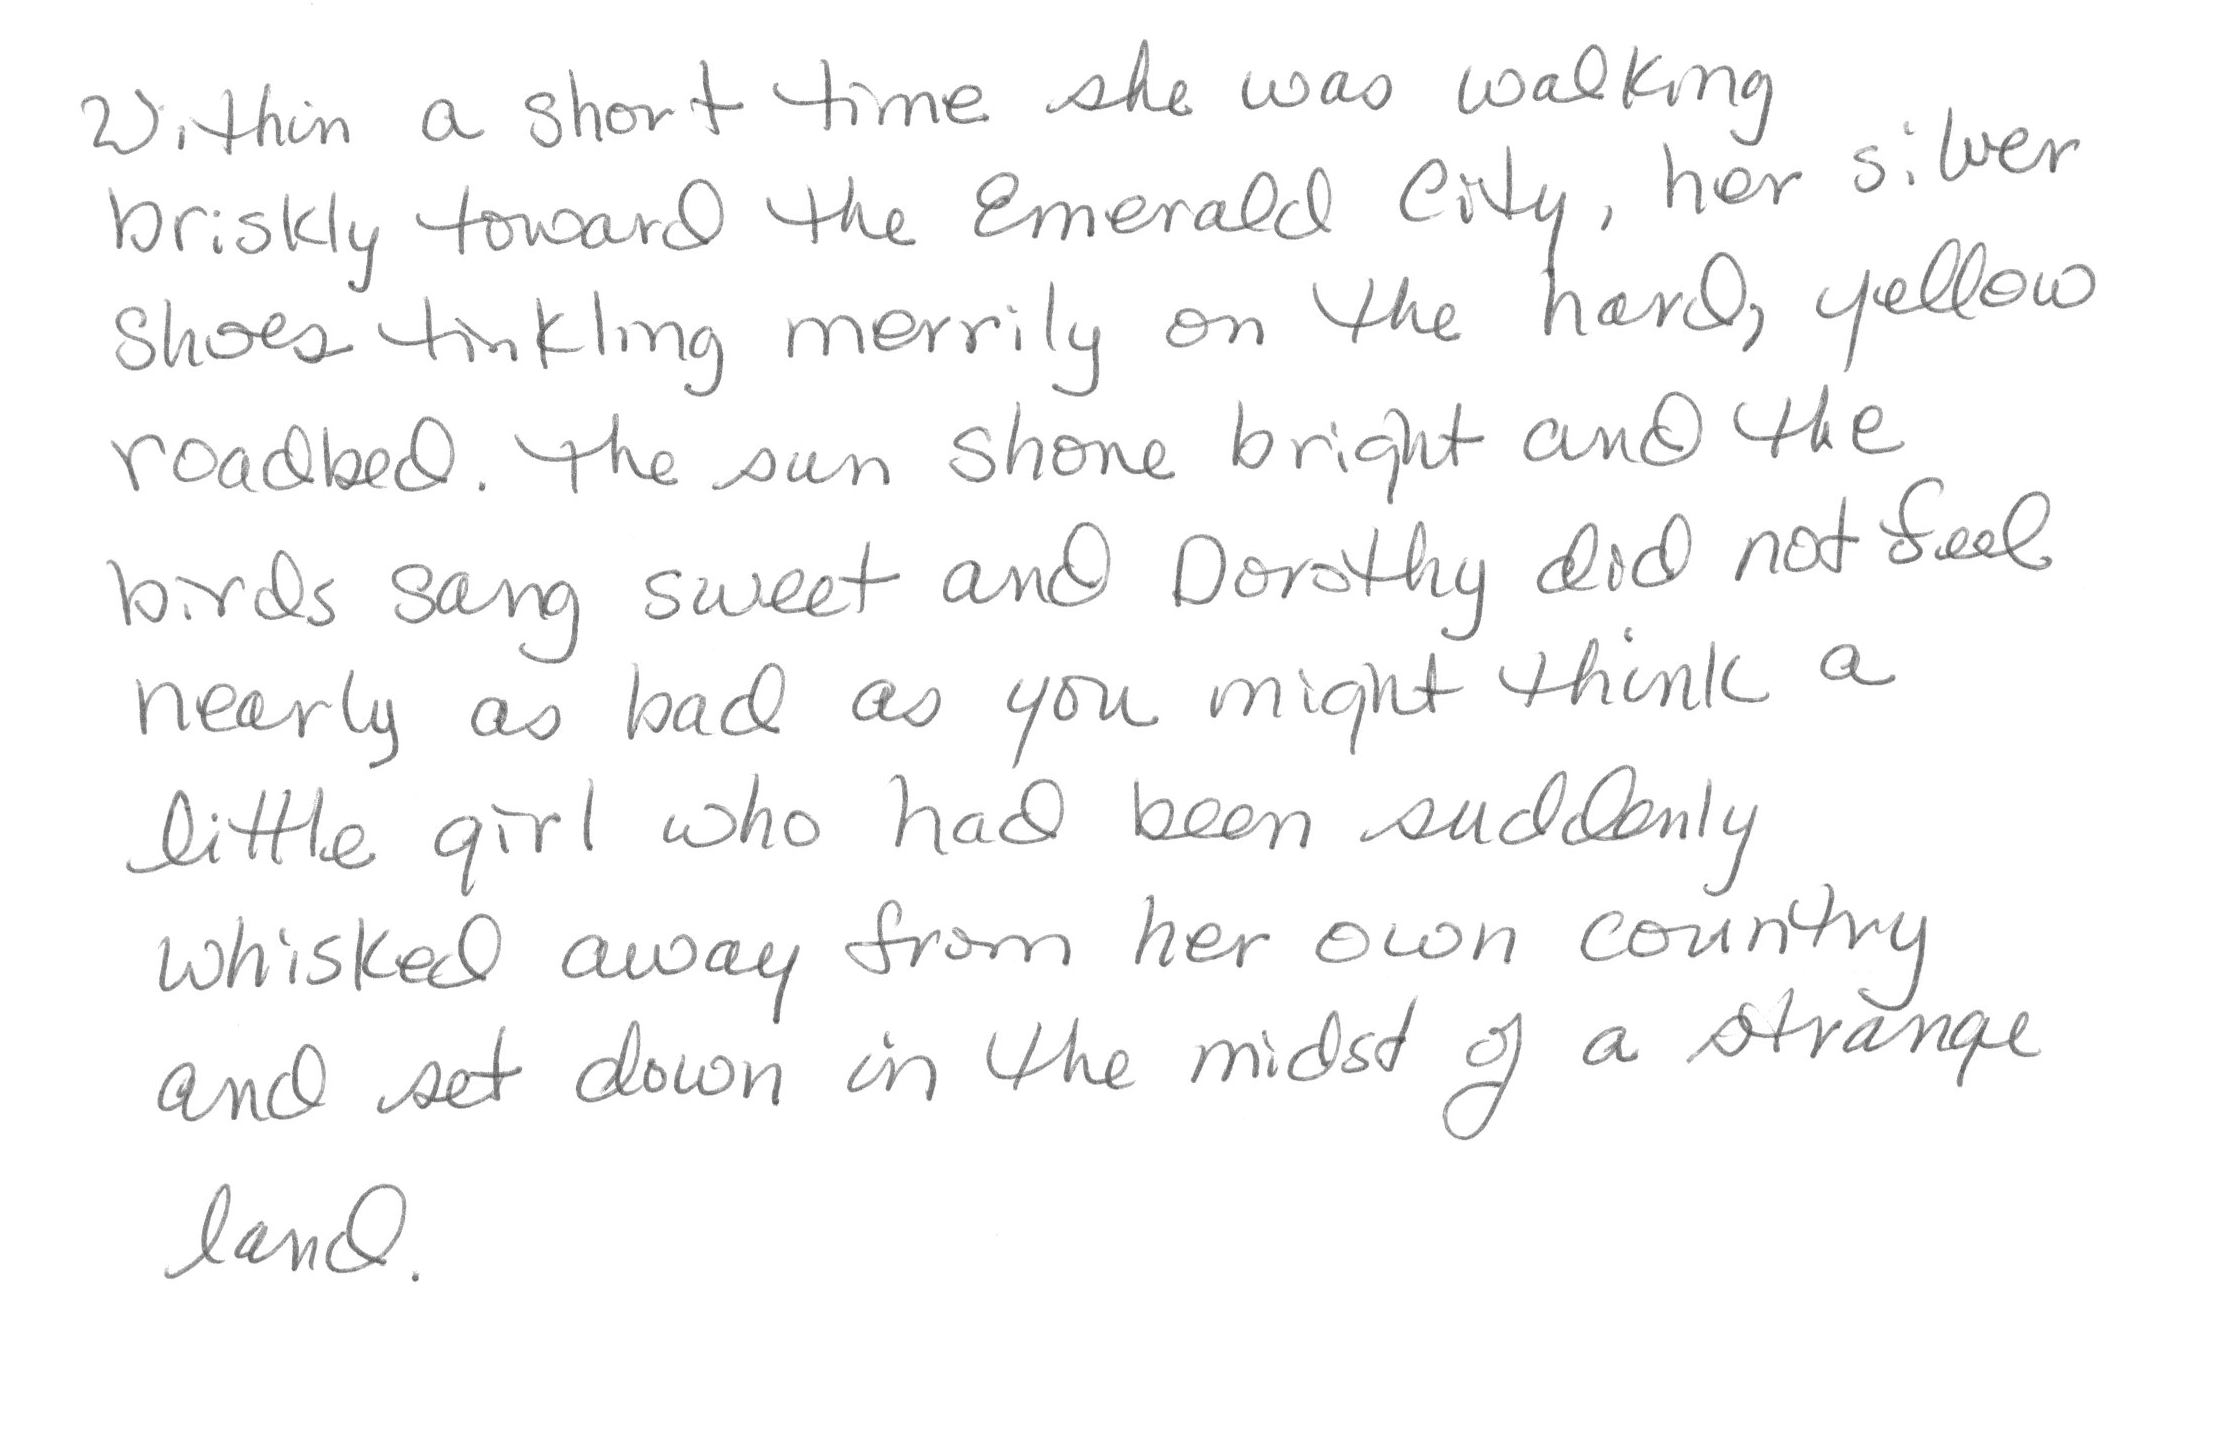 Within a short time she was walking
briskly toward the Emerald City, her silver
shoes tinkling merrily on the hard, yellow
roadbed. The sun shone bright and the
birds sang sweet and Dorothy did not feel
nearly as bad as you might think a
little girl who had been suddenly
whisked away from her own country
and set down in the midst of a strange
land.